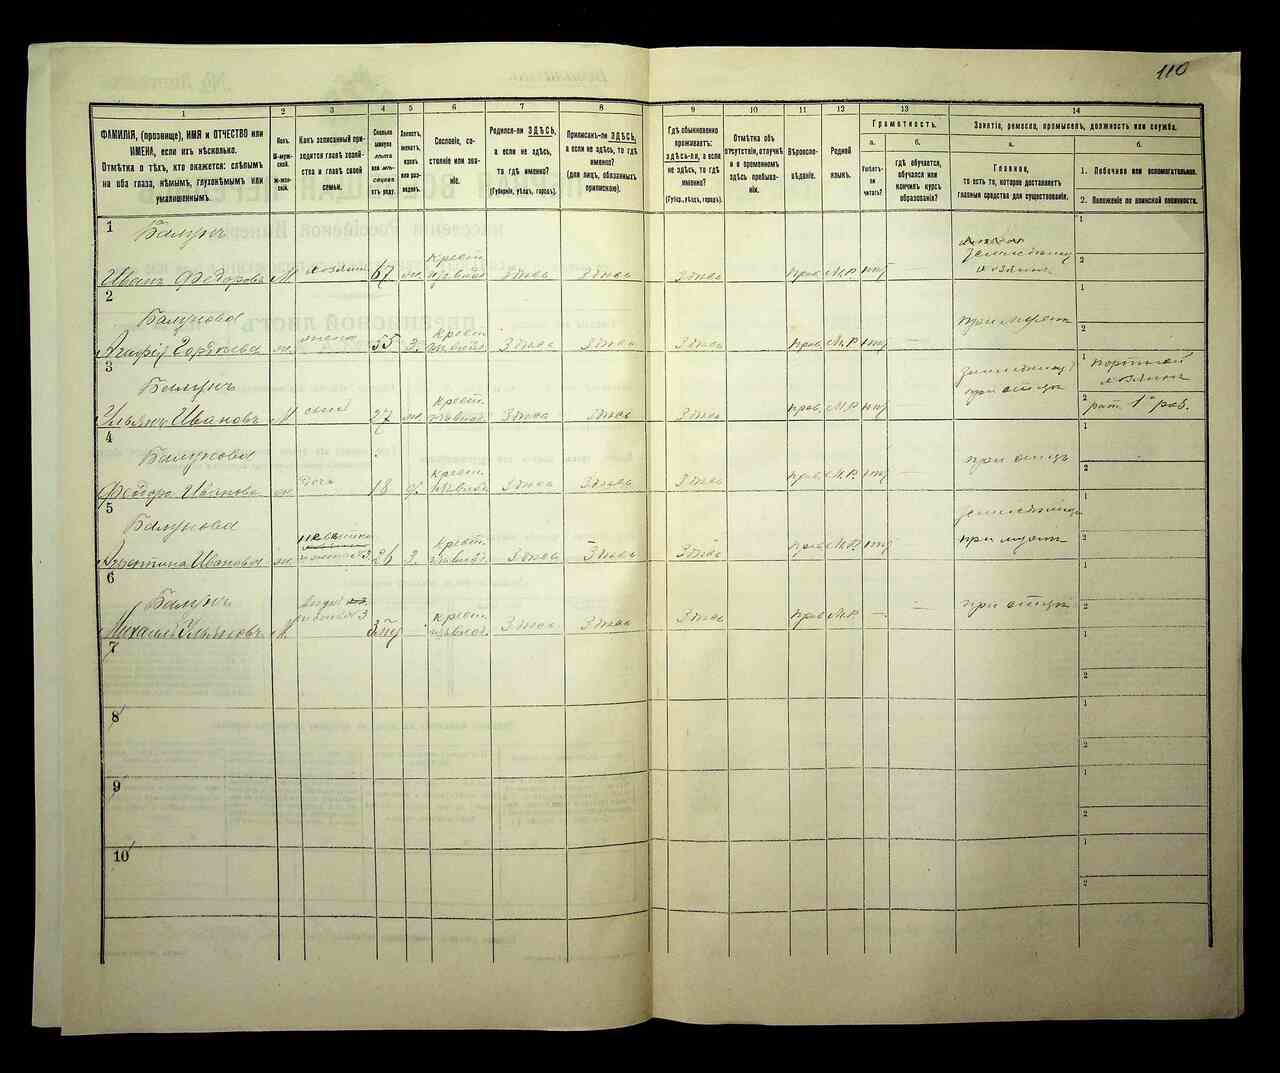 110
1 2 3 4 5 6 7 8 9 10 11 12 13 14
ФАМИЛІЯ, (прозвище), ИМЯ и ОТЧЕСТВО или
ИМЕНА, если ихъ нѣсколько.
Отмѣтка о тѣхъ, кто окажется: слѣпымъ
на оба глаза, нѣмымъ, глухонѣмымъ или
умалишеннымъ.
Полъ.
М-муж-
ской.
Ж-жен-
скій.
Какъ записанный при-
ходится главѣ хозяй-
ства и главѣ своей
семьи.
Сколько
минуло
лѣтъ
или мѣ-
сяцевъ
отъ роду.
Холостъ,
женатъ,
вдовъ
или раз-
веденъ.
Сословіе, со-
стояніе или зва-
ніе.
Родился-ли ЗДѢСЬ,
а если не здѣсь,
то гдѣ именно?
(Губернія, уѣздъ, городъ).
Приписанъ-ли ЗДѢСЬ,
а если не здѣсь, то гдѣ
именно?
(для лицъ, обязанныхъ
припискою).
Гдѣ обыкновенно
проживаетъ:
здѣсь-ли, а если
не здѣсь, то гдѣ
именно?
(Губер., уѣздъ, городъ).
Отмѣтка объ
отсутствіи, отлучкѣ
и о временномъ
здѣсь пребыва-
ніи.
Вѣроиспо-
вѣданіе.
Родной
языкъ.
Грамотность.
а. б.
Умѣетъ-
ли
читать?
гдѣ обучается,
обучался или
кончилъ курсъ
образованія?
Занятіе, ремесло, промыселъ, должность или служба.
а. б.
Главное,
то есть то, которое доставляетъ
главныя средства для существованія.
1. Побочное или вспомогательное.
2. Положеніе по воинской повинности.
1 Балунъ
Иванъ Федоровъ М хозяинъ 67 Крест. Здѣсь Здѣсь Здѣсь Прав. М.Р. нѣт —
хозяинъ
1
2
2 Балунова
жена 55 з. Крест. Здѣсь Здѣсь Здѣсь Прав. М.Р. нѣт
при мужѣ
1
2
3 Балунъ
Ульянъ Ивановъ М сынъ 27 Крест. Здѣсь Здѣсь Здѣсь Прав. М.Р. нѣт
при отцѣ
1 портной
хозяинъ
2 рат. 1го раз.
4 Балунова
Ивановна дочь 18 Крест. Здѣсь Здѣсь Здѣсь Прав. М.Р. нѣт —
при отцѣ
1
2
5 Балунова
Ивановна невѣстка 26 з. Крест. Здѣсь Здѣсь Здѣсь Прав. М.Р. нѣт —
при мужѣ
1
2
6 Балунъ
Михаилъ Ульяновъ М. 3 Крест. Здѣсь Здѣсь Здѣсь Прав. М.Р. — —
при отцѣ
1
2
7
1
2
8
1
2
9
1
2
10
1
2